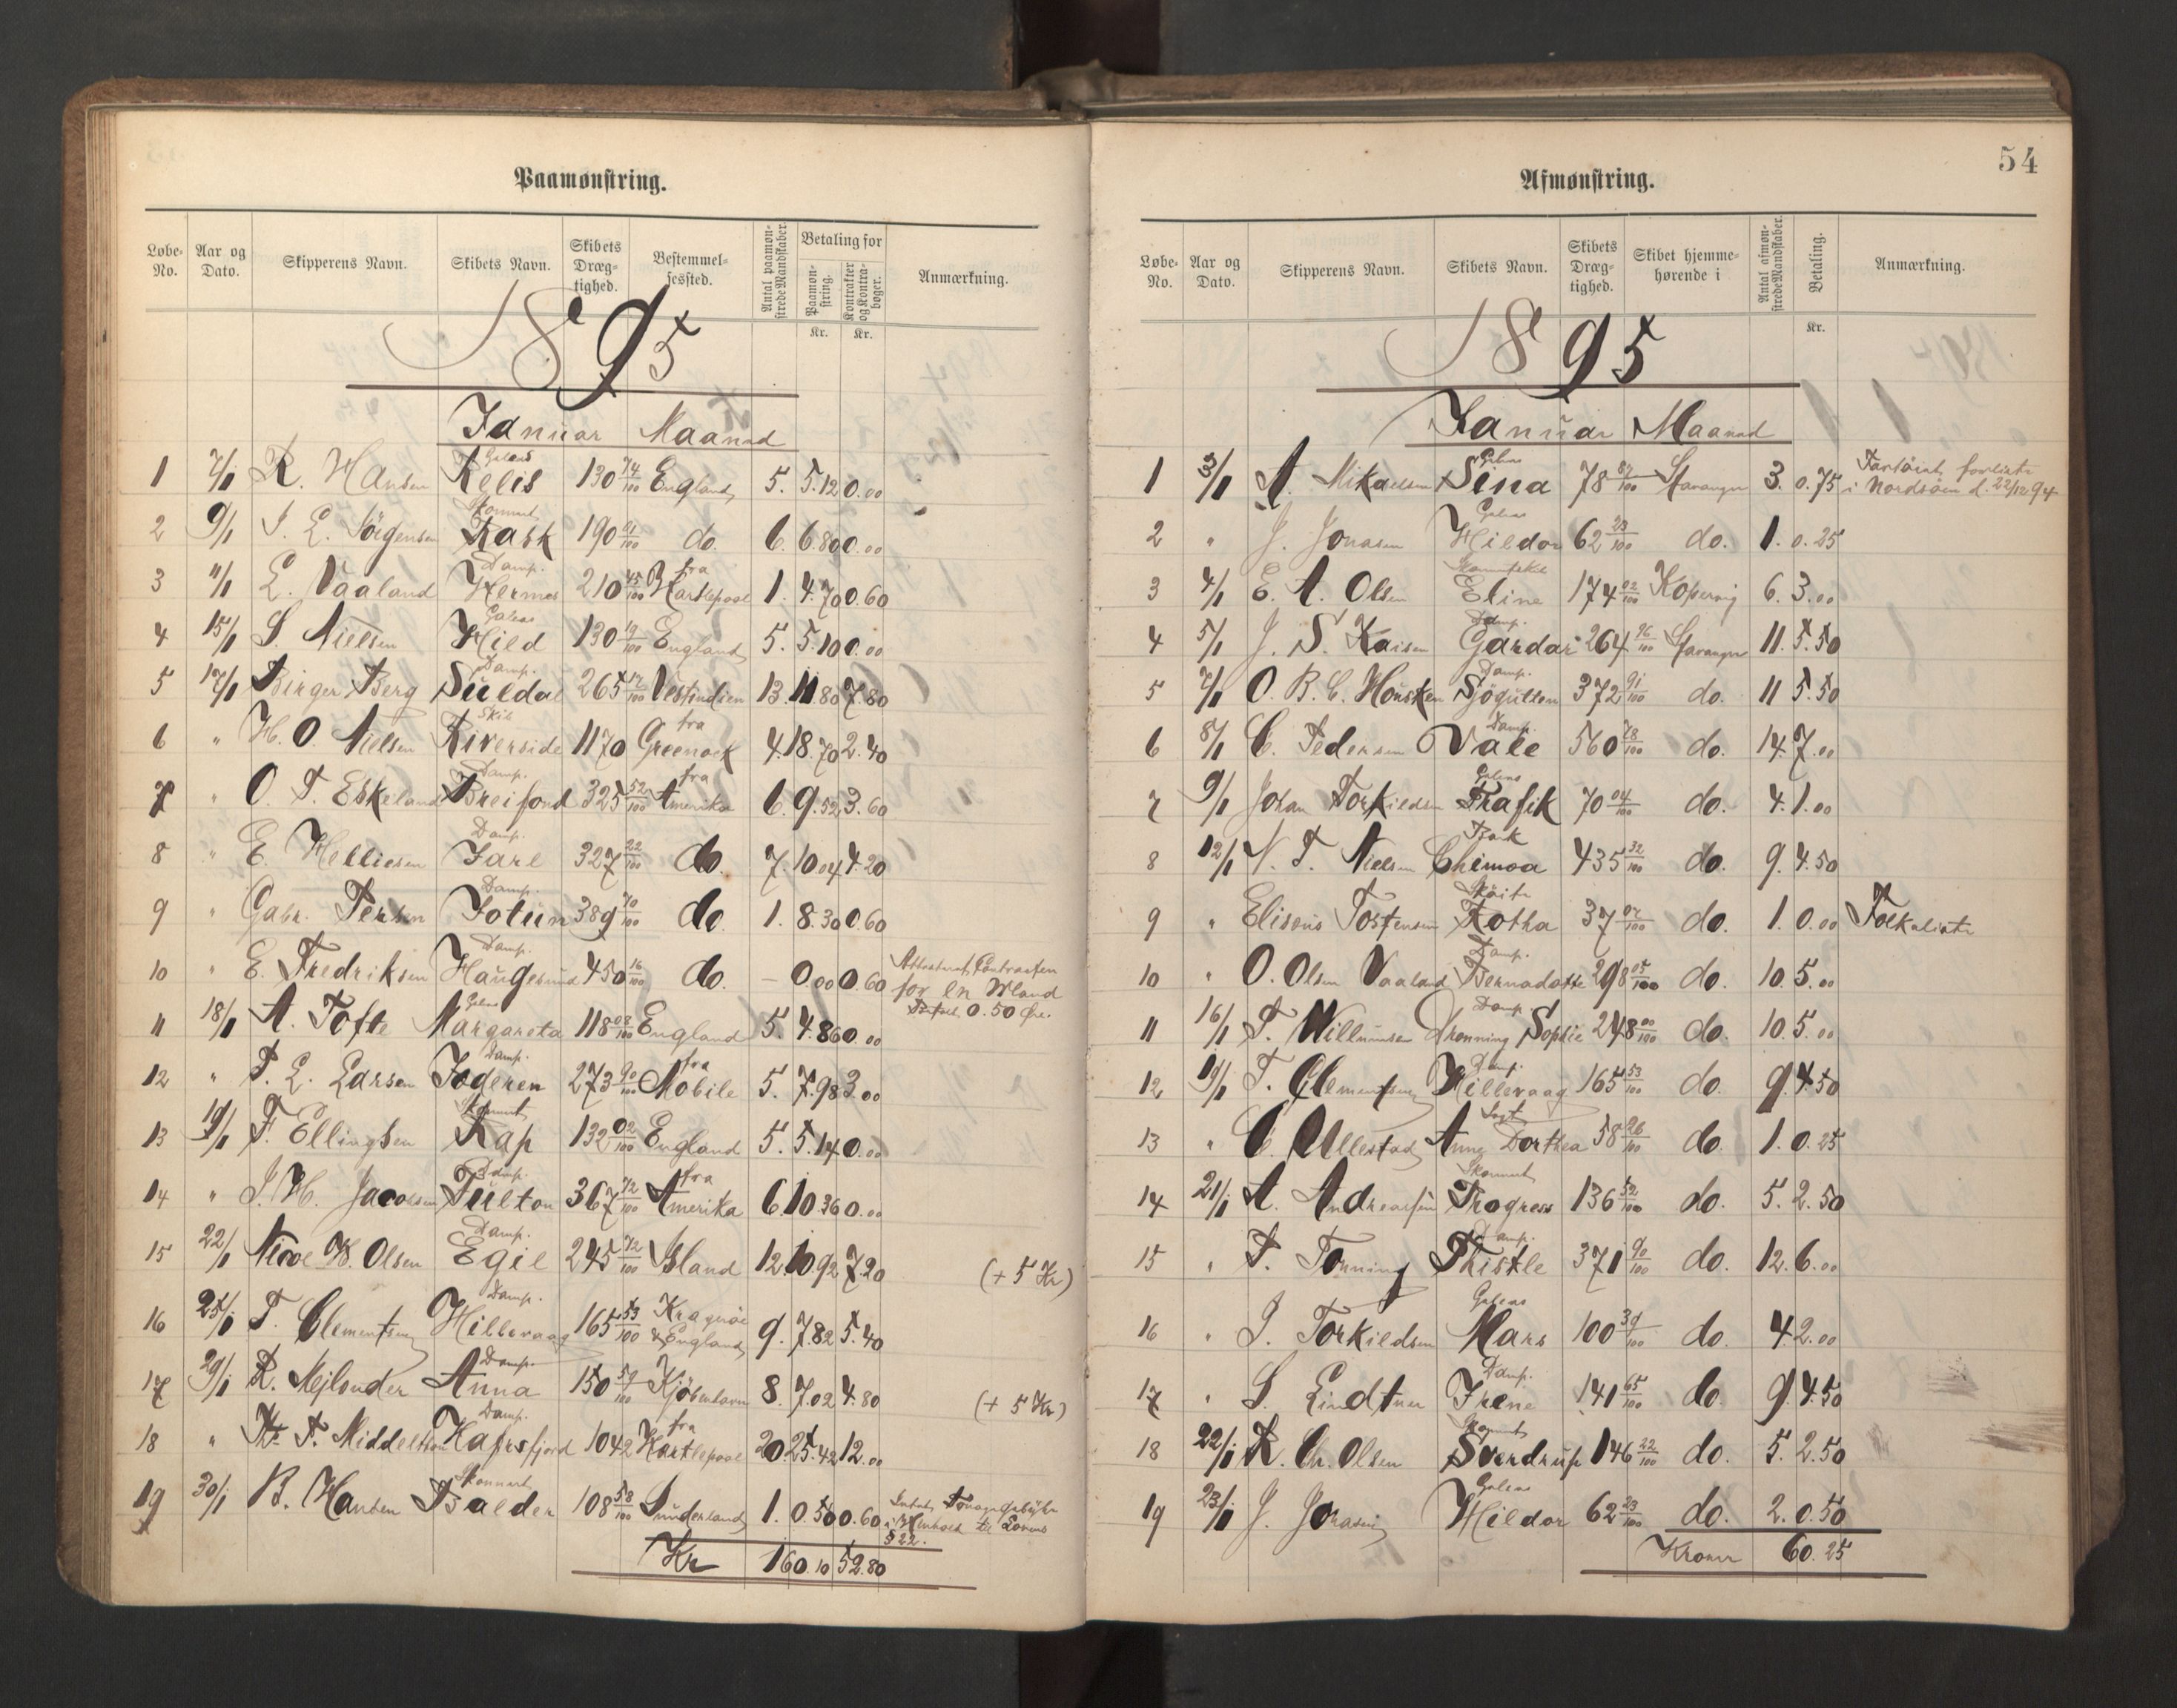 54
Paamønstring.
Løbe-No. Aar og Dato. Skipperens Navn. Skibets Navn. Skibets Dræg-tighed. Bestemmel-sessted. Antal paamøn-strede Mandskaber. Betaling for Paamøn-string. Kr. Kontrakter og Kontra-bøger. Kr. Anmærkning.
1895
Januar Maaned
1 7/1 R. Hansen Galeas 130 74/100 England 5. 5.12 0.00
2 9/1 J. L. Jörgensen Skonnert Rask 190 01/100 do. 6. 6.80 0.00
3 11/1 L. Vaaland Damp. Hermes 210 45/100 fra Hartlepool 1. 4.70 0.60
4 15/1 S. Nielsen Galeas Hild 130 19/100 England 5. 5.10 0.00
5 17/1 Birger Berg Damp. Suldal 265 12/100 Vestindien 13. 11.80 7.80
6 " H. O. Nielsen Skib Riverside 1170 fra Greenock 4. 18.70 2.40
7 " O. T. Eskeland Damp. Breifond 325 52/100 fra Amerika 6. 9.52 3.60
8 " E. Helliesen Damp. Jarl 327 22/100 do. 7. 10.04 4.20
9 " Gabr. Damp. Jotun 389 70/100 do. 1. 8.30 0.60
10 " E. Fredriksen Damp. Haugesund 450 16/100 do. – 0.00 0.60 Contracten for en Mand 0.50 Öre.
11 18/1 A. Tofte Galeas Margareta 118 08/100 England 5. 4.86 0.00
12 " P. L. Larsen Damp. Jæderen 273 90/100 fra Mobile 5. 7.98 3.00
13 19/1 F. Ellingsen Skonnert Rap 132 02/100 England 5. 5.14 0.00
14 " J. H. Jacobsen Damp. Fulton 367 72/100 fra Amerika 6. 10.36 0.00
15 22/1 W. Olsen Damp. Egil 245 72/100 Island 12. 10.92 7.20 (+ 5 Kr)
16 25/1 T. Clementsen Damp. Hillevaag 165 53/100 Kragerö & England 9. 7.82 5.40
17 29/1 R. Mejlænder Damp. Anna 150 59/100 Kjöbenhavn 8. 7.02 4.80 (+ 5 Kr)
18 " Th. F. Middelthon Damp. Hafrsfjord 1042 fra Hartlepool 20. 25.42 12.00
19 30/1 B. Hansen Skonnert Balder 108 58/100 Sunderland 1. 0.50 0.60 i Henhold til Lovens § 22.
Kr 160.10 52.80
Afmønstring.
Løbe-No. Aar og Dato. Skipperens Navn. Skibets Navn. Skibets Dræg-tighed. Skibet hjemme-hørende i Antal afmøn-strede Mandskaber. Betaling. Kr. Anmærkning.
1895
Januar Maaned
1 3/1 A. Mikaelsen Galeas Sina 78 89/100 Stavanger 3. 0.75 Fartöiet forliste i Nordsöen d. 22/12 94
2 " J. Jonasen Galeas Hildor 62 23/100 do. 1. 0.25
3 4/1 E. A. Olsen Eline 174 02/100 Kopervig 6. 3.00
4 5/1 J. S. Kaisen Damp. Gardar 264 96/100 Stavanger 11. 5.50
5 7/1 O. B. C. Housken Damp. Sjögutten 372 91/100 do. 11 5.50
6 8/1 C. Pedersen Damp. Vale 560 78/100 do. 14. 7.00
7 9/1 Johan Torkildsen Galeas Trafik 70 04/100 do. 4. 1.00
8 12/1 N. T. Nielsen Bark Chimoa 435 32/100 do. 9. 4.50
9 " Eliseus Tostensen Sköite Rotha 37 07/100 do. 1. 0.00 Folkeliste
10 " O. Olsen Vaaland Damp. Bernadotte 298 05/100 do. 10. 5.00
11 16/1 T. Willumsen Damp Dronning Sophie 248 00/100 do. 10. 5.00
12 19/1 T. Clementsen Damp. Hillevaag 165 53/100 do. 9. 4.50
13 " C. Ullestad Jagt Anne Dorthea 58 26/100 do. 1. 0.25
14 21/1 A. Andreassen Skonnert Progress 136 52/100 do. 5. 2.50
15 " T. Tonning Damp. Thistle 371 90/100 do. 12. 6.00
16 " J. Torkildsen Galeas Mars 100 39/100 do. 4. 2.00
17 " S. Lindtner Damp. Irene 141 65/100 do. 9. 4.50
18 22/1 K. Chr. Olsen Skonnert Sverdrup 146 22/100 do. 5. 2.50
19 23/1 J. Jonasen Galeas Hildor 62 23/100 do. 2. 0.50
Kroner 60.25